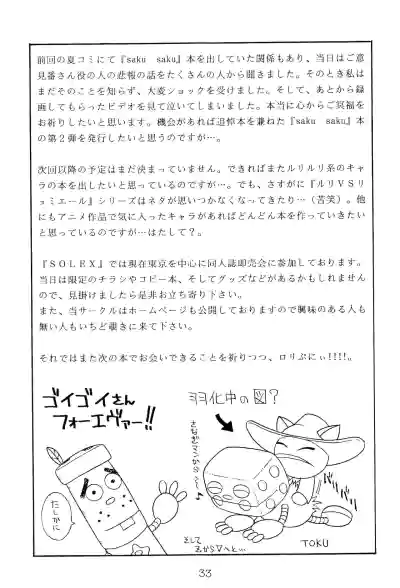 前回の夏コミにて『saku saku』本を出していた関係もあり、当日はご意
見番さん役の人の悲報の話をたくさんの人から聞きました。そのとき私は
まだそのことを知らず、大変ショックを受けました。そして、あとから録
画してもらったビデオを見て泣いてしまいました。本当に心からご冥福を
お祈りしたいと思います。機会があれば追悼本を兼ねた『saku saku』本
の第2弾を発行したいと思うのですが…。
次回以降の予定はまだ決まっていません。できればまたルリルリ系のキャ
ラの本を出したいと思っているのですが…。でも、さすがに『ルリVSリ
ュミエール』シリーズはネタが思いつかなくなってきたり…(苦笑)。他
にもアニメ作品で気に入ったキャラがあればどんどん本を作っていきたい
と思っているのですが…はたして?。
『SOLEX』では現在東京を中心に同人誌即売会に参加しております。
当日は限定のチラシやコピー本、そしてグッズなどがあるかもしれません
ので、見掛けましたら是非お立ち寄り下さい。
また、当サークルはホームページも公開しておりますので興味のある人も
無い人もいちど覗きに来て下さい。
それではまた次の本でお会いできることを祈りつつ、ロリぷにぃ!!!!。
ゴイゴイさん
フォーエヴァー!!
羽化中の図?
たしかに
そして
TOKU
33